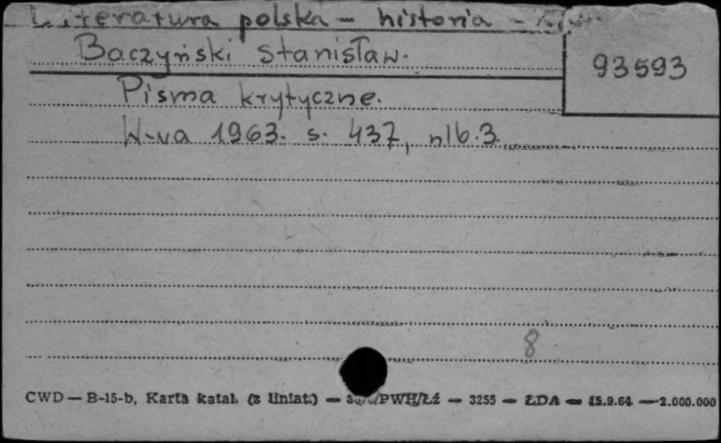 Literatura polska - historia -
Baczyński Stanisław.
93593
Pisma krytyczne.
W-wa 1963. s. 437, nlb. 3
8
CWD — B-15-b, Karta katal. (z liniat.) — /PWH/Łź — 3255 — ŁDA — 15.9.64 — 2.000.000